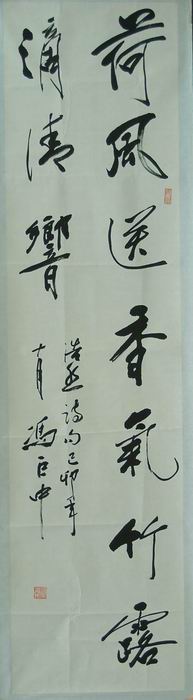 荷風送香氣竹露
滴清響
浩然詩句己卯年
十月馮巨中